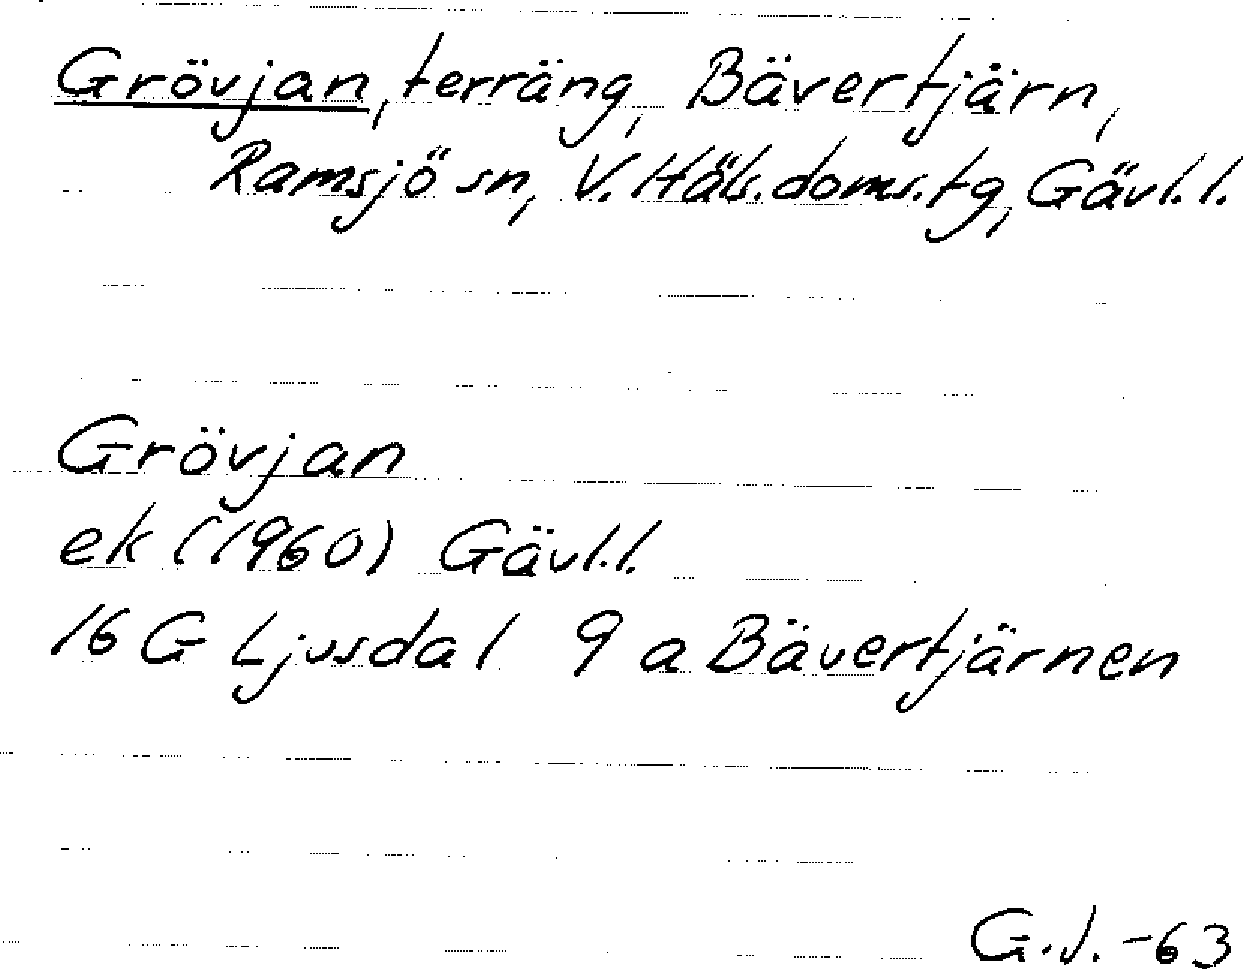 Grövjan, terräng, Bävertjärn,
Ramsjö sn, V. Häls. doms. tg, Gävl. l.
Grövjan
ek (1960) Gävl. l.
16 G Ljusdal 9 a Bävertjärnen
G.J. -63